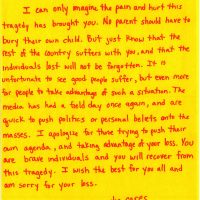 I can only imagine the pain and hurt this
tragedy has brought you. No parent should have to
bury their own child. But just know that the
rest of the country suffers with you, and that the
individuals lost will not be forgotten. It is
unfortunate to see good people suffer, but even more
for people to take advantage of such a situation. The
media has had a field day once again, and are
quick to push politics or personal beliefs onto the
masses. I apologize for those trying to push their
own agenda, and taking advantage of your loss. You
are brave individuals and you will recover from
this tragedy. I wish the best for you all and
am sorry for your loss.
cares